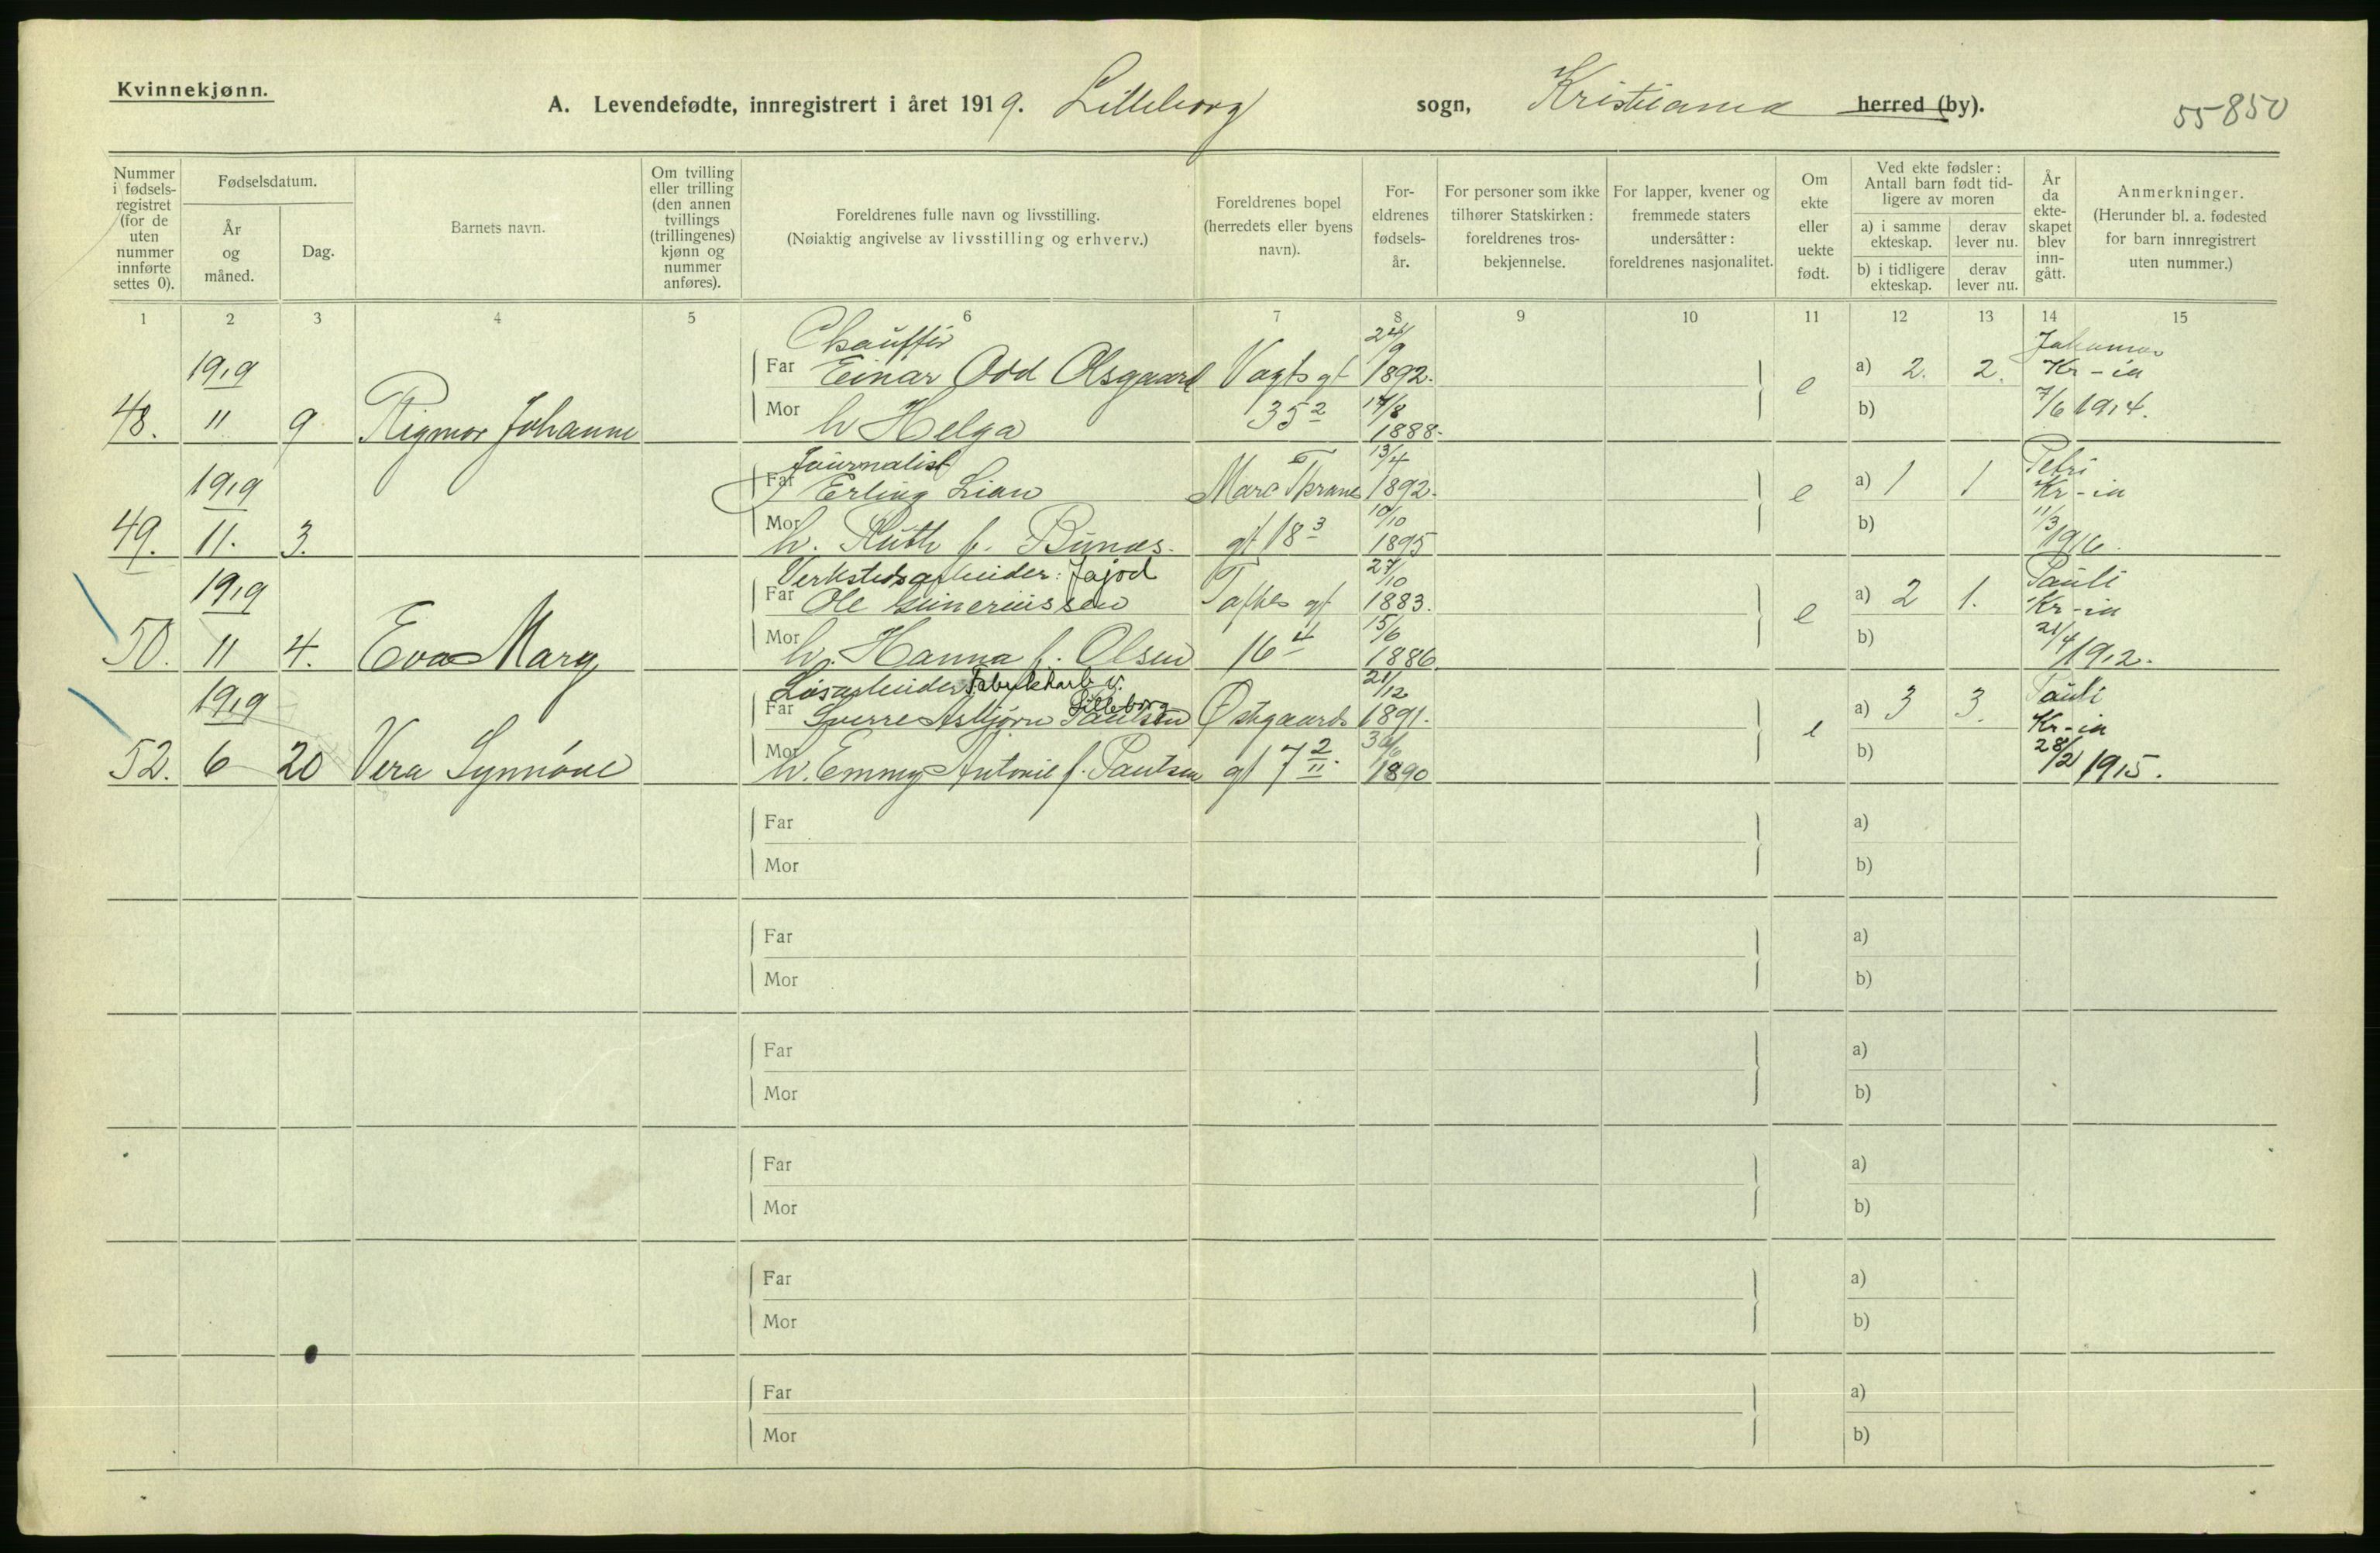 Kvinnekjønn.
A. Levendefødte, innregistrert i året 1919. Lilleborg sogn, Kristiania herred (by).
55850
Nummer i fødsels-registret (for de uten nummer innførte settes 0).
Fødselsdatum.
År og måned.
Dag.
Barnets navn.
Om tvilling eller trilling (den annen tvillings (trillingenes) kjønn og nummer anføres).
Foreldrenes fulle navn og livsstilling.
(Nøiaktig angivelse av livsstilling og erhverv.)
Foreldrenes bopel (herredets eller byens navn).
For-eldrenes fødsels-år.
For personer som ikke tilhører Statskirken: foreldrenes tros-bekjennelse.
For lapper, kvener og fremmede staters undersåtter: foreldrenes nasjonalitet.
Om ekte eller uekte født.
Ved ekte fødsler: Antall barn født tid-ligere av moren
a) i samme ekteskap.
derav lever nu.
b) i tidligere ekteskap.
derav lever nu.
År da ekte-skapet blev inn-gått.
Anmerkninger.
(Herunder bl. a. fødested for barn innregistrert uten nummer.)
1 2 3 4 5 6 7 8 9 10 11 12 13 14 15
Chauffør 24/9
1919 Far Einar Odd Olsgaard Vogts gt 1892. e a) 2. 2. Kr-ia
48. 11 9 Rigmor Johanne Mor h Helga 35 2 17/8 1888. b) 7/6 1914.
Journalist 13/4 Petri
1919 Far Erling Lian Marc Thranes 1892. e a) 1 1 Kr-ia
49. 11. 3. Mor h. Ruth f. Bunæs. gt 18 3 10/10 1895 b) 11/3 1916.
Verkstedsarbeider: Jajod 27/10 Pauli
1919 Far Ole Guneriussen Toftes gt 1883. e a) 2 1. Kr-ia
50. 11 4. Eva Marg Mor h. Hanna f. Olsen 16 4 15/6 1886 b) 21/4 1912.
Løsarbeider Fabrikkarb v. Lilleborg 21/12 Pauli
1919 Far Sverre Asbjørn Paulsen Østgaards 1891. e a) 3 3. Kr-ia
52. 6 20 Vera Synnøve Mor h. Emmy Antonie f. Paulsen gt 7 2/11. 30/6 1890 b) 28/2 1915.
Far a)
Mor b)
Far a)
Mor b)
Far a)
Mor b)
Far a)
Mor b)
Far a)
Mor b)
Far a)
Mor b)